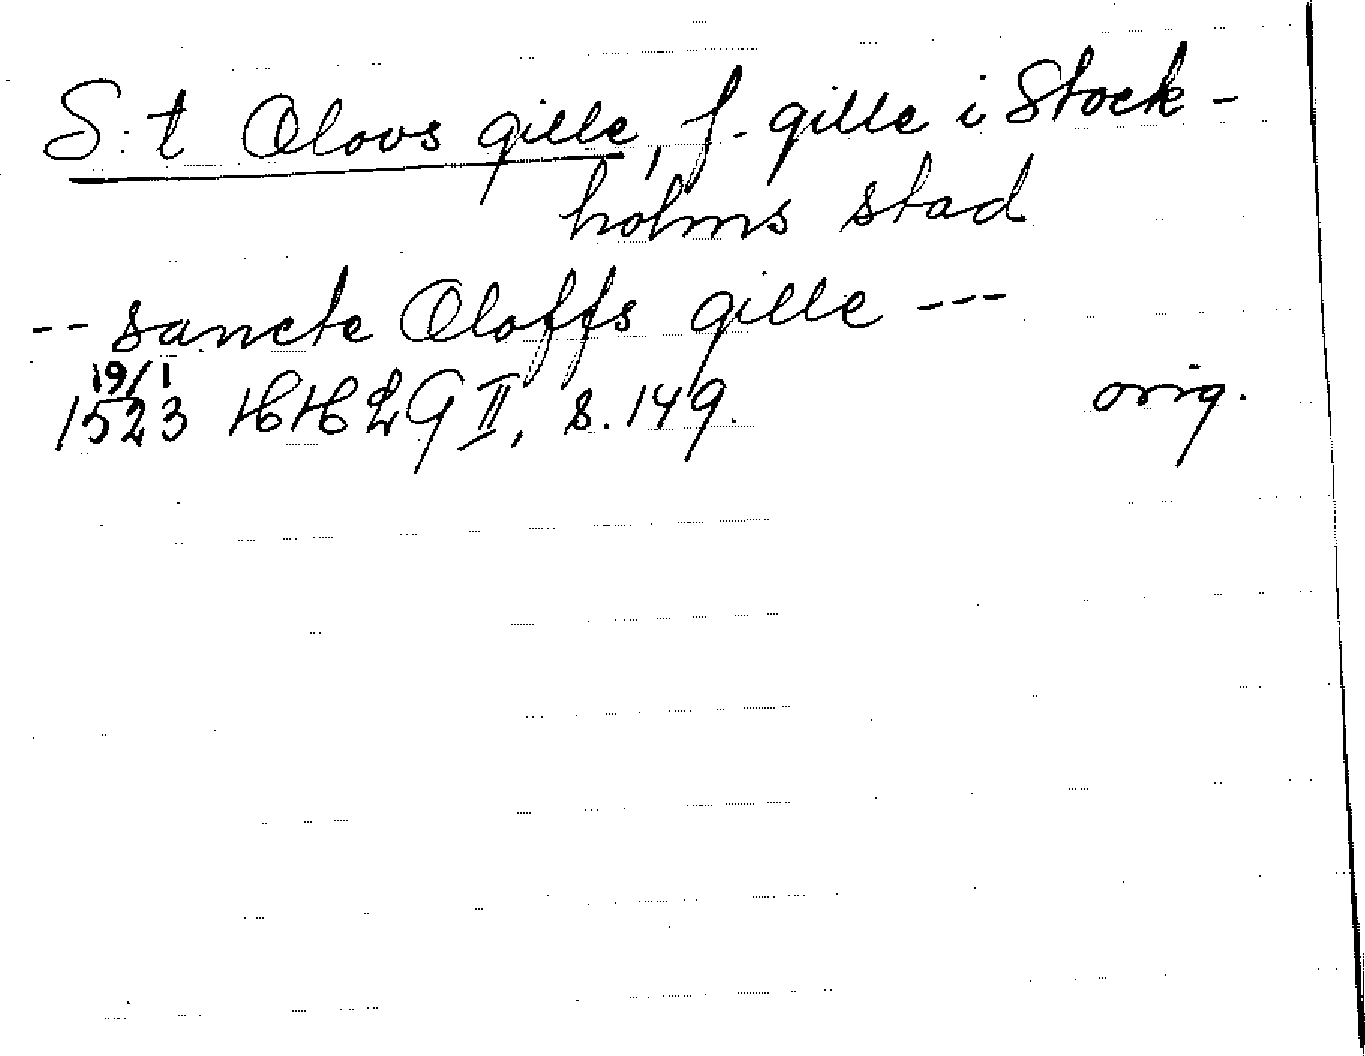 S:t Olovs gille, f. gille i Stock-
holms stad
-- sancte Oloffs gille ---
19/1
1523 HH2G II, s. 149. orig.